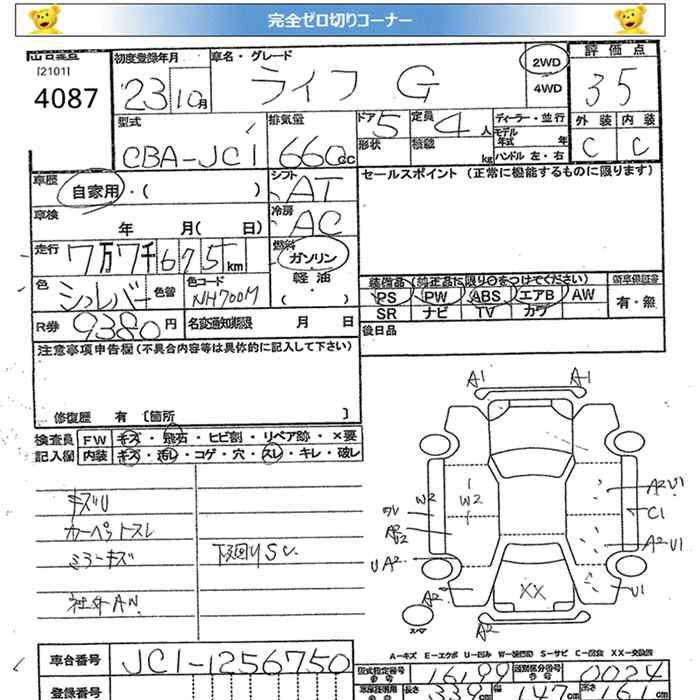 完全ゼロ切りコーナー
[2101]
4087
初度登録年月 車名・グレード 2WD 評価点
'23 10月 ライフ G 4WD 35
型式 排気量 ドア 定員 ディーラー・並行 外装 内装
CBA-JC1 660cc 5 4人 モデル年式 年 C C
形状 積載 kg ハンドル 左・右
車歴 自家用・( ) シフト AT セールスポイント (正常に機能するものに限ります)
車検 年 月( 日) 冷房 AC
走行 7万7千675km 燃料 ガソリン・軽油・( )
色 シルバー 色替 色コード NH700M
装備品(純正品に限り○をつけてください) 新車保証書
PS PW ABS エアB AW 有・無
SR ナビ TV カワ
R券 9380円 名変通知期限 月 日 後日品
注意事項申告欄(不具合内容等は具体的に記入して下さい)
修復歴 有 [箇所 ]
検査員 FW キズ・飛石・ヒビ割・リペア跡・×要
記入欄 内装 キズ・汚レ・コゲ・穴・スレ・キレ・破レ
キズU
カーペットスレ
ミラーキズ 下廻りSU
社外AW
A1 A1
W2 W2 A2U1
C1
A2U1
UA2
XX U1
A2 A2
スペア
A-キズ E-エクボ U-凹み W-波凹 S-サビ C-腐食 XX-交換済
車台番号 JC1-1256750 型式指定番号 16199 類別区分番号 0024
登録番号 長さ 339cm 幅 147cm 高さ